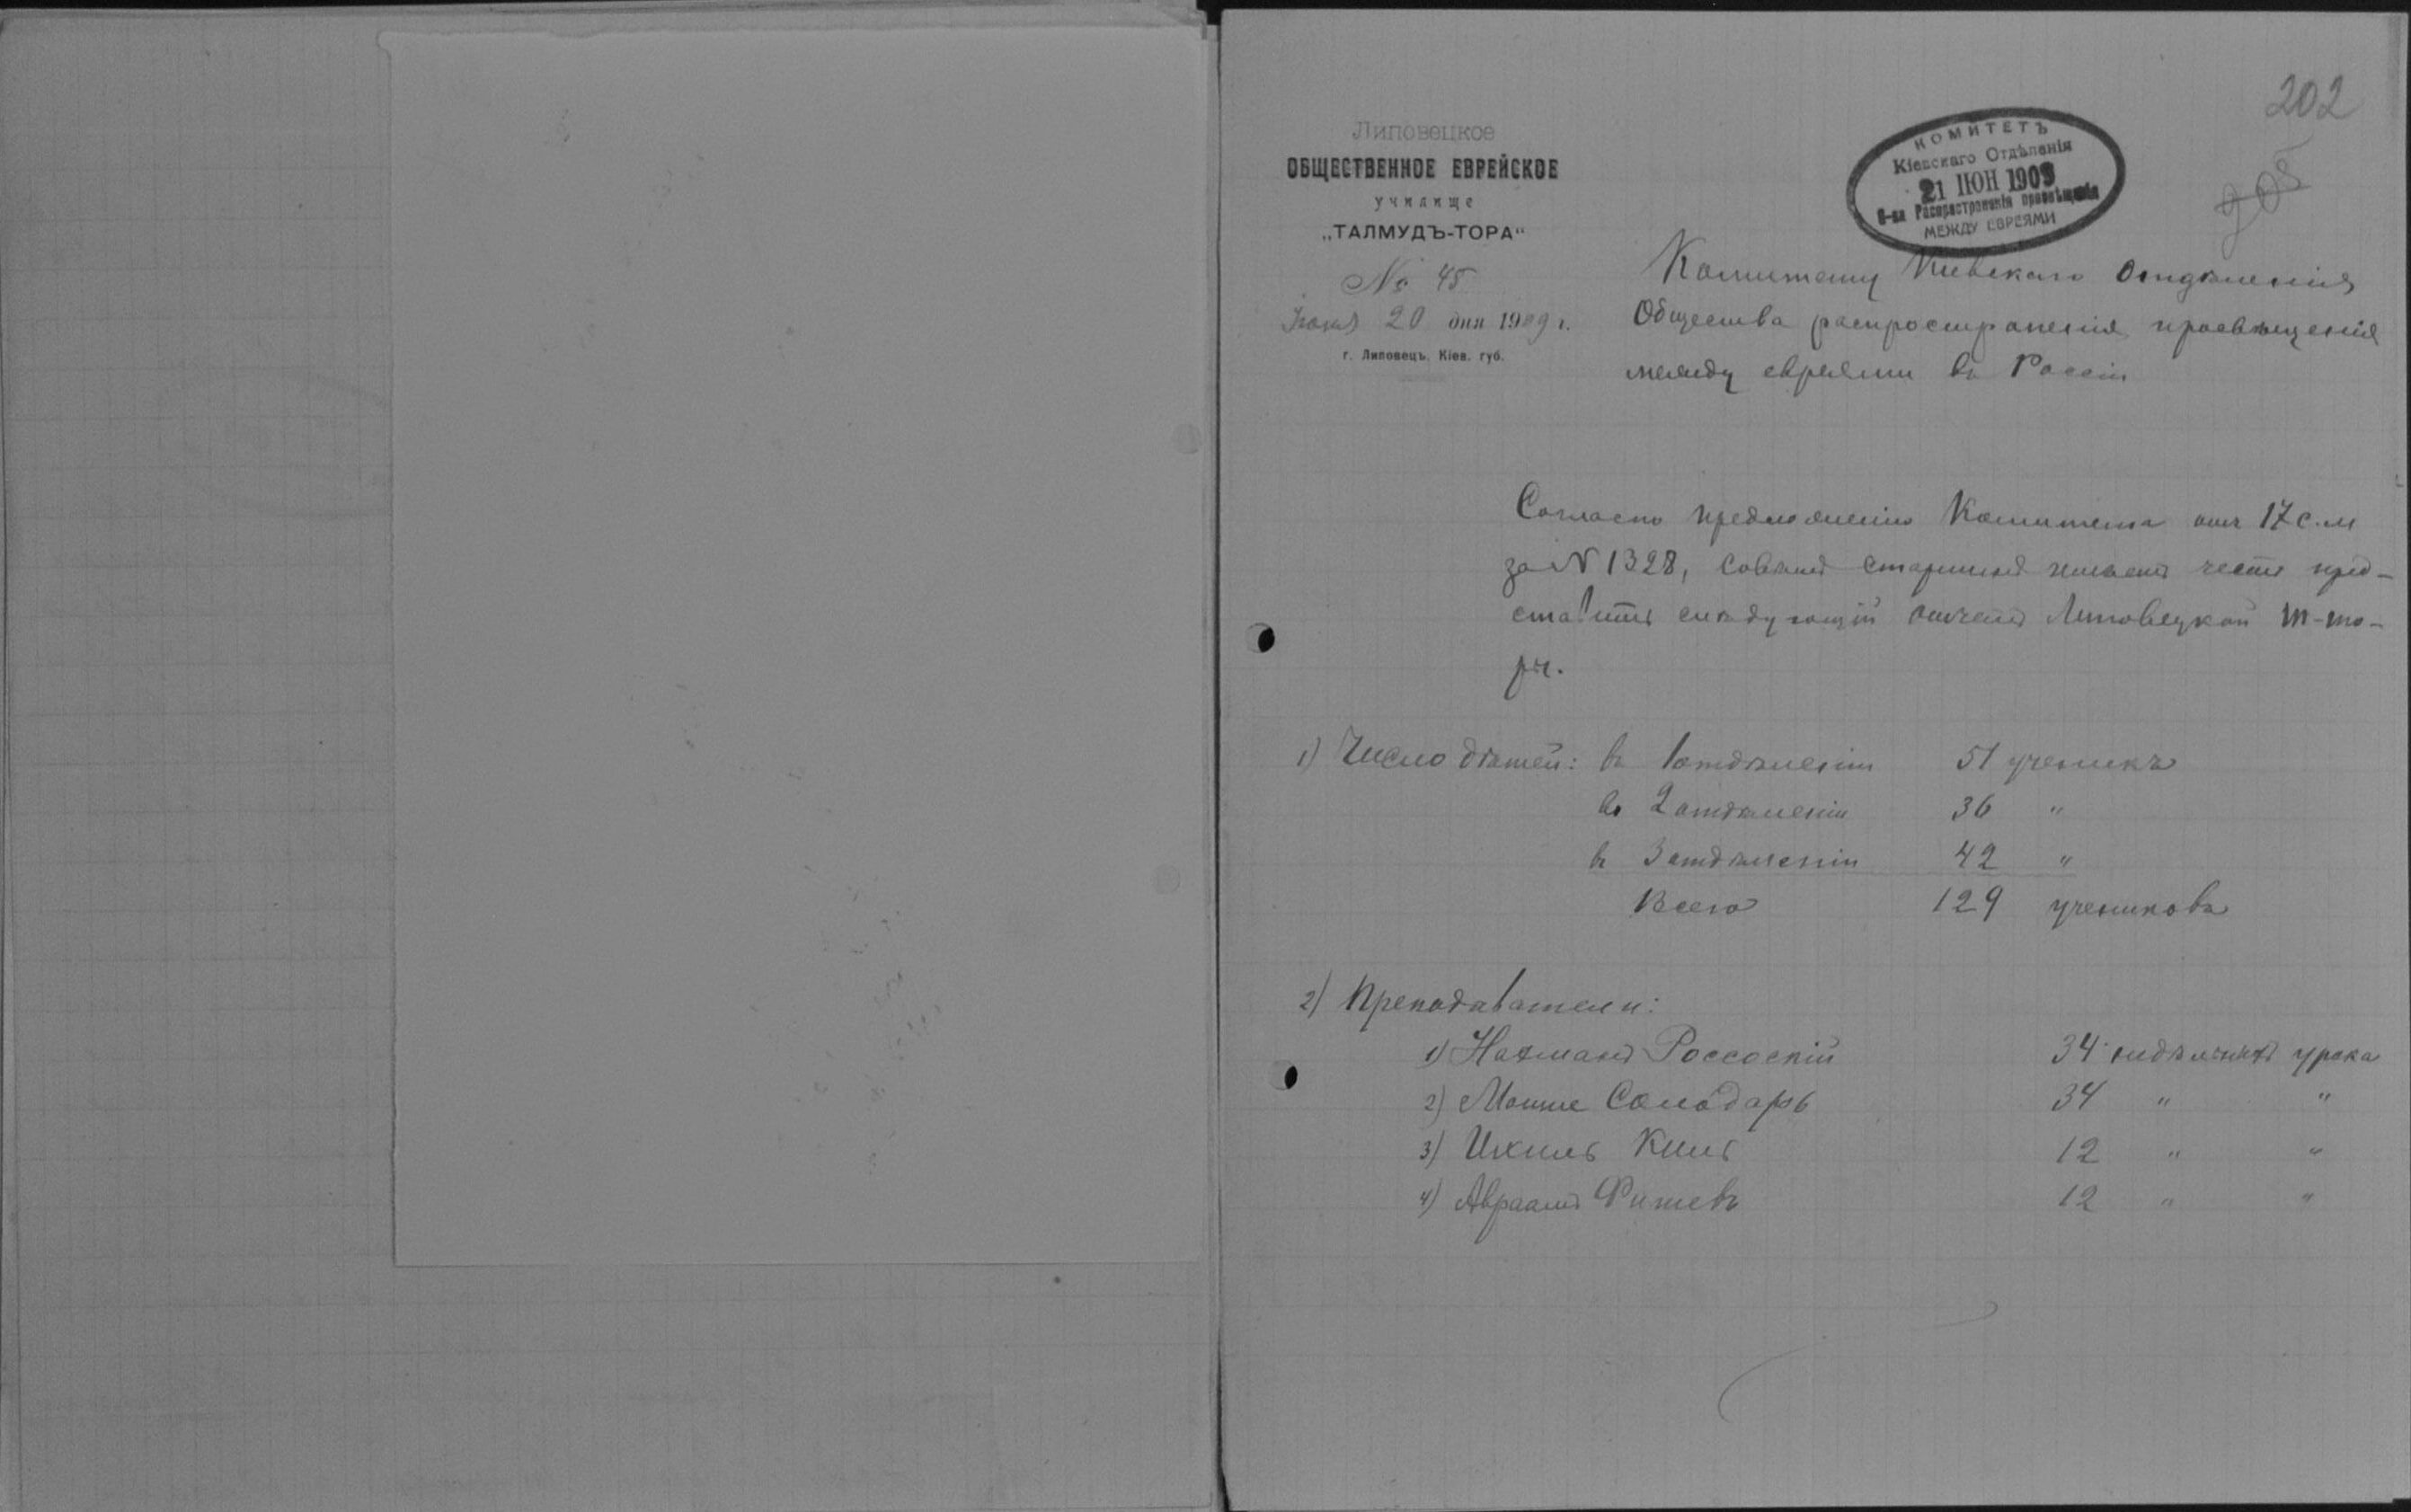 202
Липовецкое
ОБЩЕСТВЕННОЕ ЕВРЕЙСКОЕ
училище
„ТАЛМУДЪ-ТОРА“
№ 45
Іюня 20 дня 1909 г.
г. Липовецъ, Кіев. губ.
КОМИТЕТЪ
Кіевскаго Отдѣленія
21 ІЮН 1909
О-ва Распространенія просвѣщенія
МЕЖДУ ЕВРЕЯМИ
205
Комитету Кіевскаго Отдѣленія
Общества распространенія просвѣщенія
между евреями въ Россіи
Согласно предложенію Комитета отъ 17 с.м
за N 1328, Совѣтъ старшинъ имѣетъ честь пред-
ставить слѣдующій отчетъ Липовецкой т-то-
ры.
1) Число дѣтей: въ 1 отдѣленіи 51 ученикъ
въ 2 отдѣленіи 36 "
въ 3 отдѣленіи 42 "
Всего 129 учениковъ
2) Преподаватели:
1) Нахманъ Россоскій 34 недѣльныхъ урока
2) Мошке Солодарь 34 " "
3) Ихиль Киль 12 " "
4) Авраамъ 12 " "